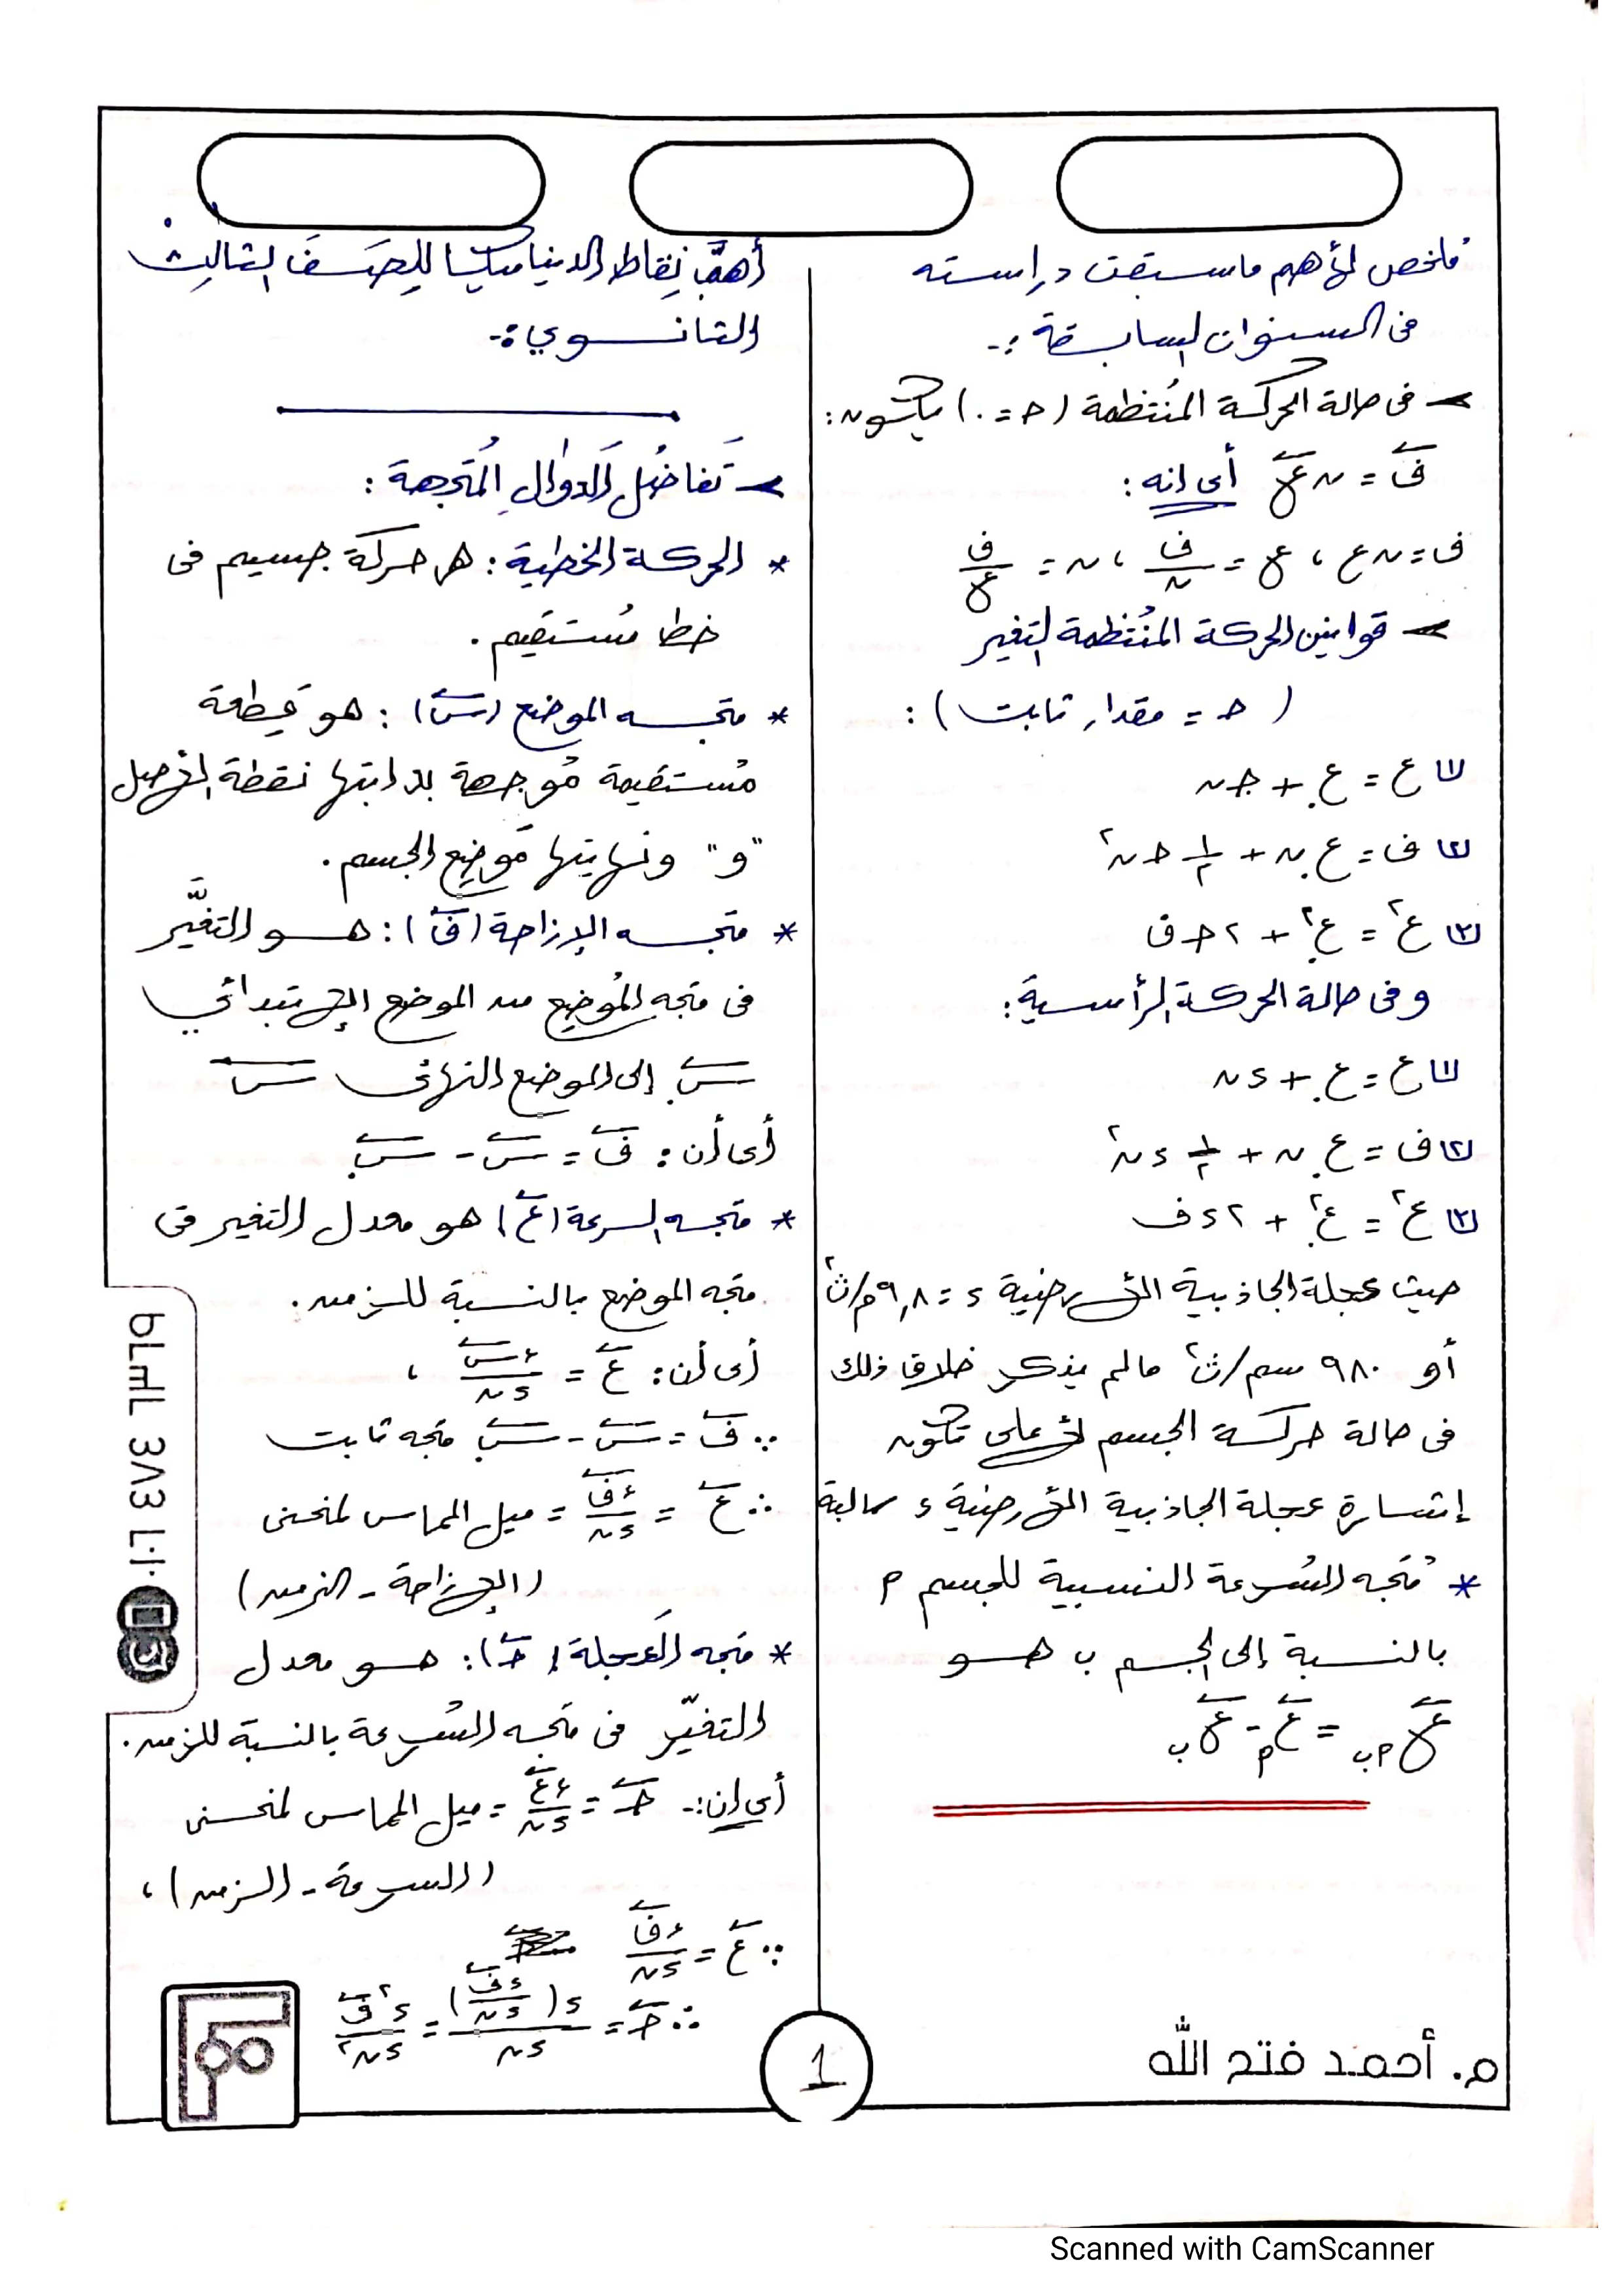 مُلخص لأهم ما سبقت دراسته
فى السنوات السابقة :-
← فى حالة الحركة المُنتظمة (حـ = ٠) يكون :
ف⃖ = ن ع⃖ أى إنه :
ف = ن ع ، ع = ف/ن ، ن = ف/ع
← قوانين الحركة المُنتظمة التغير
( حـ = مقدار ثابت ) :
(١) ع = ع. + حـ ن
(٢) ف = ع. ن + ١/٢ حـ ن٢
(٣) ع٢ = ع.٢ + ٢ حـ ف
وفى حالة الحركة الرأسية :
(١) ع = ع. + ء ن
(٢) ف = ع. ن + ١/٢ ء ن٢
(٣) ع٢ = ع.٢ + ٢ ء ف
حيث عجلة الجاذبية الأرضية ء = ٩,٨ م/ث٢
أو ٩٨٠ سم/ث٢ مالم يذكر خلاف ذلك
فى حالة حركة الجسم لأعلى تكون
إشارة عجلة الجاذبية الأرضية ء سالبة
* مُتجه السُرعة النسبية للجسم م
بالنسبة إلى الجسم ب هو
ع⃖ م ب = ع⃖ م - ع⃖ ب
أهمَّ نِقاط الديناميكيا للِصَف الثالِث
الثانوي :-
← تَفاضُل الَدوال المُتجهة :
* الحركة الخطية : هى حركة جسيم فى
خط مُستقيم .
* متجه الموضع (س⃖) : هو قِطعة
مُستقيمة مُوجهة بدايتها نقطة الأصل
"و" ونهايتها مَوضِع الجسم .
* متجه الإزاحة (ف⃖) : هو التغيَّر
فى متجه المُوضِع من الموضع الإبتدائي
س⃖. إلى الموضع النهائى س⃖
أى أن : ف⃖ = س⃖ - س⃖.
* متجه السرعة (ع⃖) هو معدل التغير فى
متجه الموضع بالنسبة للزمن .
أى أن : ع⃖ = ء س⃖/ء ن ،
∵ ف⃖ = س⃖ - س⃖. متجه ثابت
∴ ع⃖ = ء ف⃖/ء ن = ميل المماس لمنحنى
(الإزاحة - الزمن)
* متجه العَجلة (حـ⃖) : هو معدل
التغيّر فى متجه السُرعة بالنسبة للزمن .
أى إن :- حـ⃖ = ء ع⃖/ء ن = ميل المماس لمنحنى
(السرعة - الزمن) ،
∵ ع⃖ = ء ف⃖/ء ن
∴ حـ⃖ = ء(ء ف⃖/ء ن)/ء ن = ء٢ ف⃖/ء ن٢
م. أحمد فتح الله
1
Scanned with CamScanner